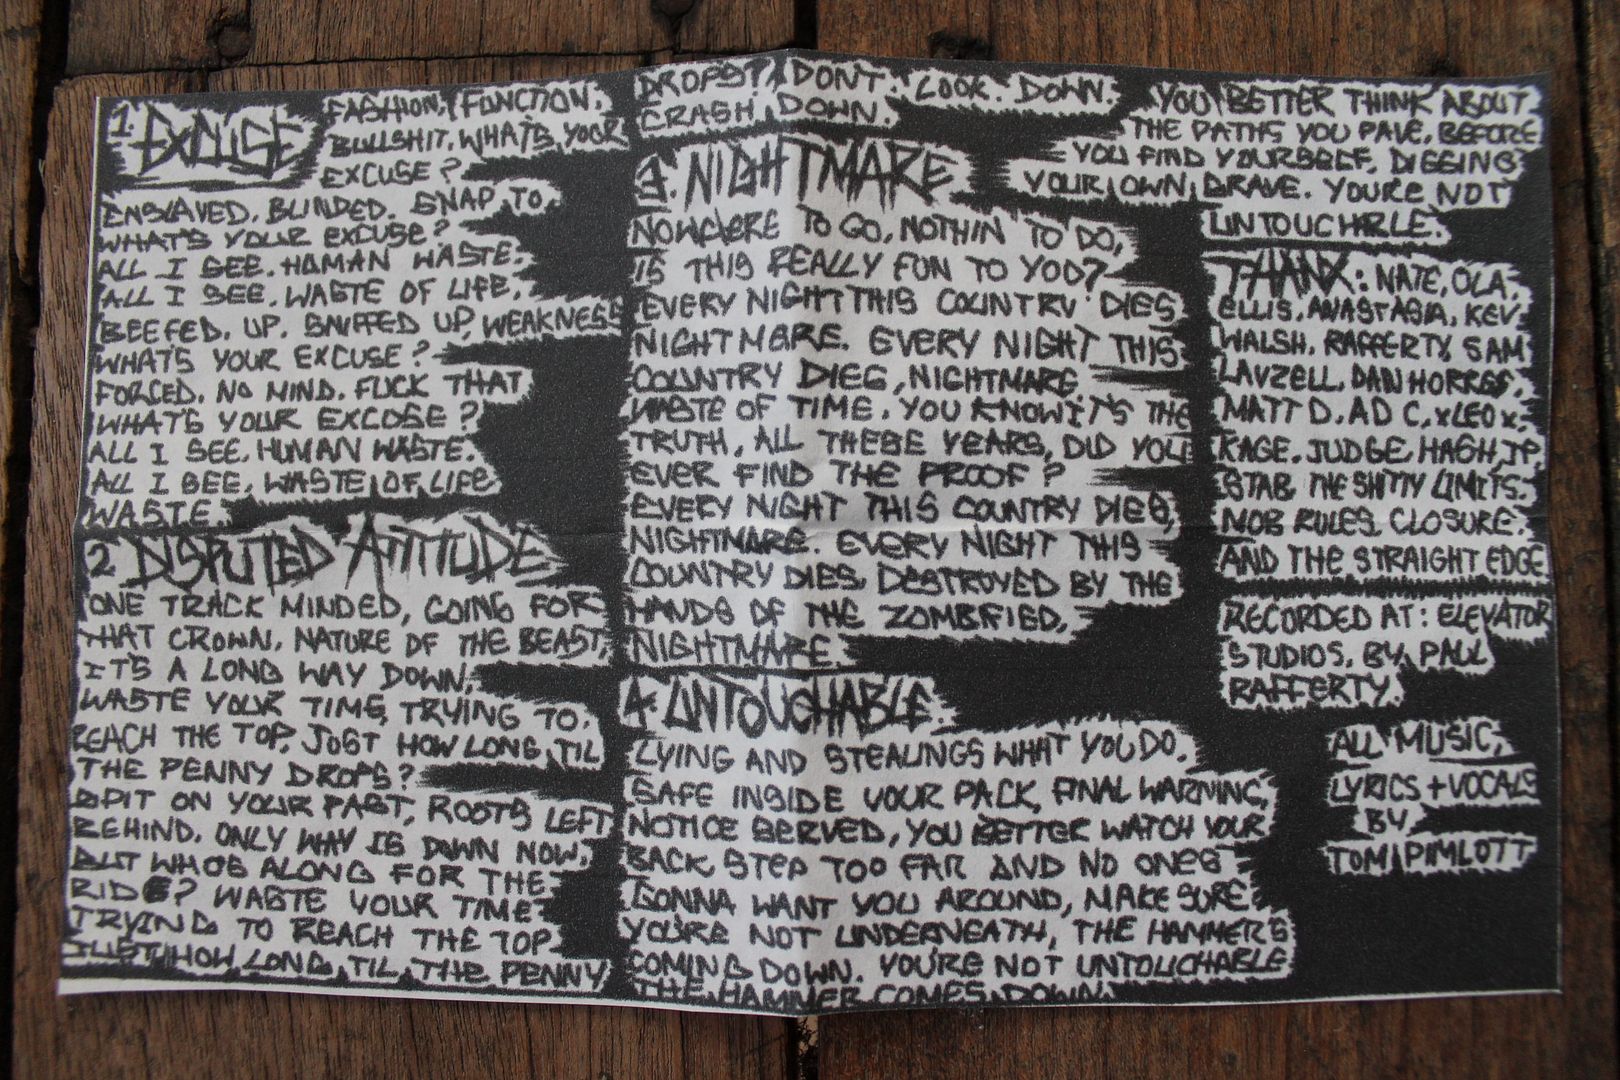 1. EXCUSE
FASHION, FUNCTION.
BULLSHIT. WHATS YOUR
EXCUSE?
ENSLAVED. BLINDED. SNAP TO.
WHAT'S YOUR EXCUSE?
ALL I SEE. HUMAN WASTE.
ALL I SEE. WASTE OF LIFE.
BEEFED. UP. SNIFFED UP, WEAKNESS
WHATS YOUR EXCUSE?
FORCED. NO MIND. FUCK THAT
WHAT'S YOUR EXCUSE?
ALL I SEE. HUMAN WASTE.
ALL I SEE. WASTE OF LIFE
WASTE.
2 DISPUTED ATTITUDE
ONE TRACK MINDED, GOING FOR
THAT CROWN, NATURE OF THE BEAST,
IT'S A LONG WAY DOWN,
WASTE YOUR TIME, TRYING TO.
REACH THE TOP, JUST HOW LONG, TIL
THE PENNY DROPS?
SPIT ON YOUR PAST, ROOTS LEFT
BEHIND. ONLY WAY IS DOWN NOW,
BUT WHOS ALONG FOR THE
RIDE? WASTE YOUR TIME
TRYING TO REACH THE TOP
JUST HOW LONG, TIL THE PENNY
DROPS? DONT. LOOK. DOWN.
CRASH DOWN.
3. NIGHTMARE
NOWHERE TO GO, NOTHIN TO DO,
IS THIS REALLY FUN TO YOU?
EVERY NIGHT THIS COUNTRY DIES
NIGHTMARE. EVERY NIGHT THIS
COUNTRY DIES, NIGHTMARE
WASTE OF TIME. YOU KNOW IT'S THE
TRUTH, ALL THESE YEARS, DID YOU
EVER FIND THE PROOF?
EVERY NIGHT THIS COUNTRY DIES,
NIGHTMARE. EVERY NIGHT THIS
COUNTRY DIES, DESTROYED BY THE
HANDS OF THE ZOMBIFIED,
NIGHTMARE.
4. UNTOUCHABLE.
LYING AND STEALINGS WHAT YOU DO.
SAFE INSIDE YOUR PACK, FINAL WARNING,
NOTICE SERVED, YOU BETTER WATCH YOUR
BACK STEP TOO FAR AND NO ONES
GONNA WANT YOU AROUND, MAKE SURE
YOU'RE NOT UNDERNEATH, THE HAMMER'S
COMING DOWN. YOU'RE NOT UNTOUCHABLE
THE HAMMER COMES DOWN.
YOU BETTER THINK ABOUT
THE PATHS YOU PAVE, BEFORE
YOU FIND YOURSELF, DIGGING
YOUR OWN GRAVE. YOURE NOT
UNTOUCHABLE.
THANX: NATE, OLA,
ELLIS. ANASTASIA, KEV.
WALSH. RAFFERTY, SAM
LAVZELL, DAN
MATT D. AD C, xLEOx,
KAGE. JUDGE, HASH, JP.
STAB. THE SHITTY LIMITS.
MOB RULES. CLOSURE.
AND THE STRAIGHT EDGE
RECORDED AT: ELEVATOR
STUDIOS. BY PAUL
RAFFERTY.
ALL MUSIC,
LYRICS + VOCALS
BY
TOM PIMLOTT